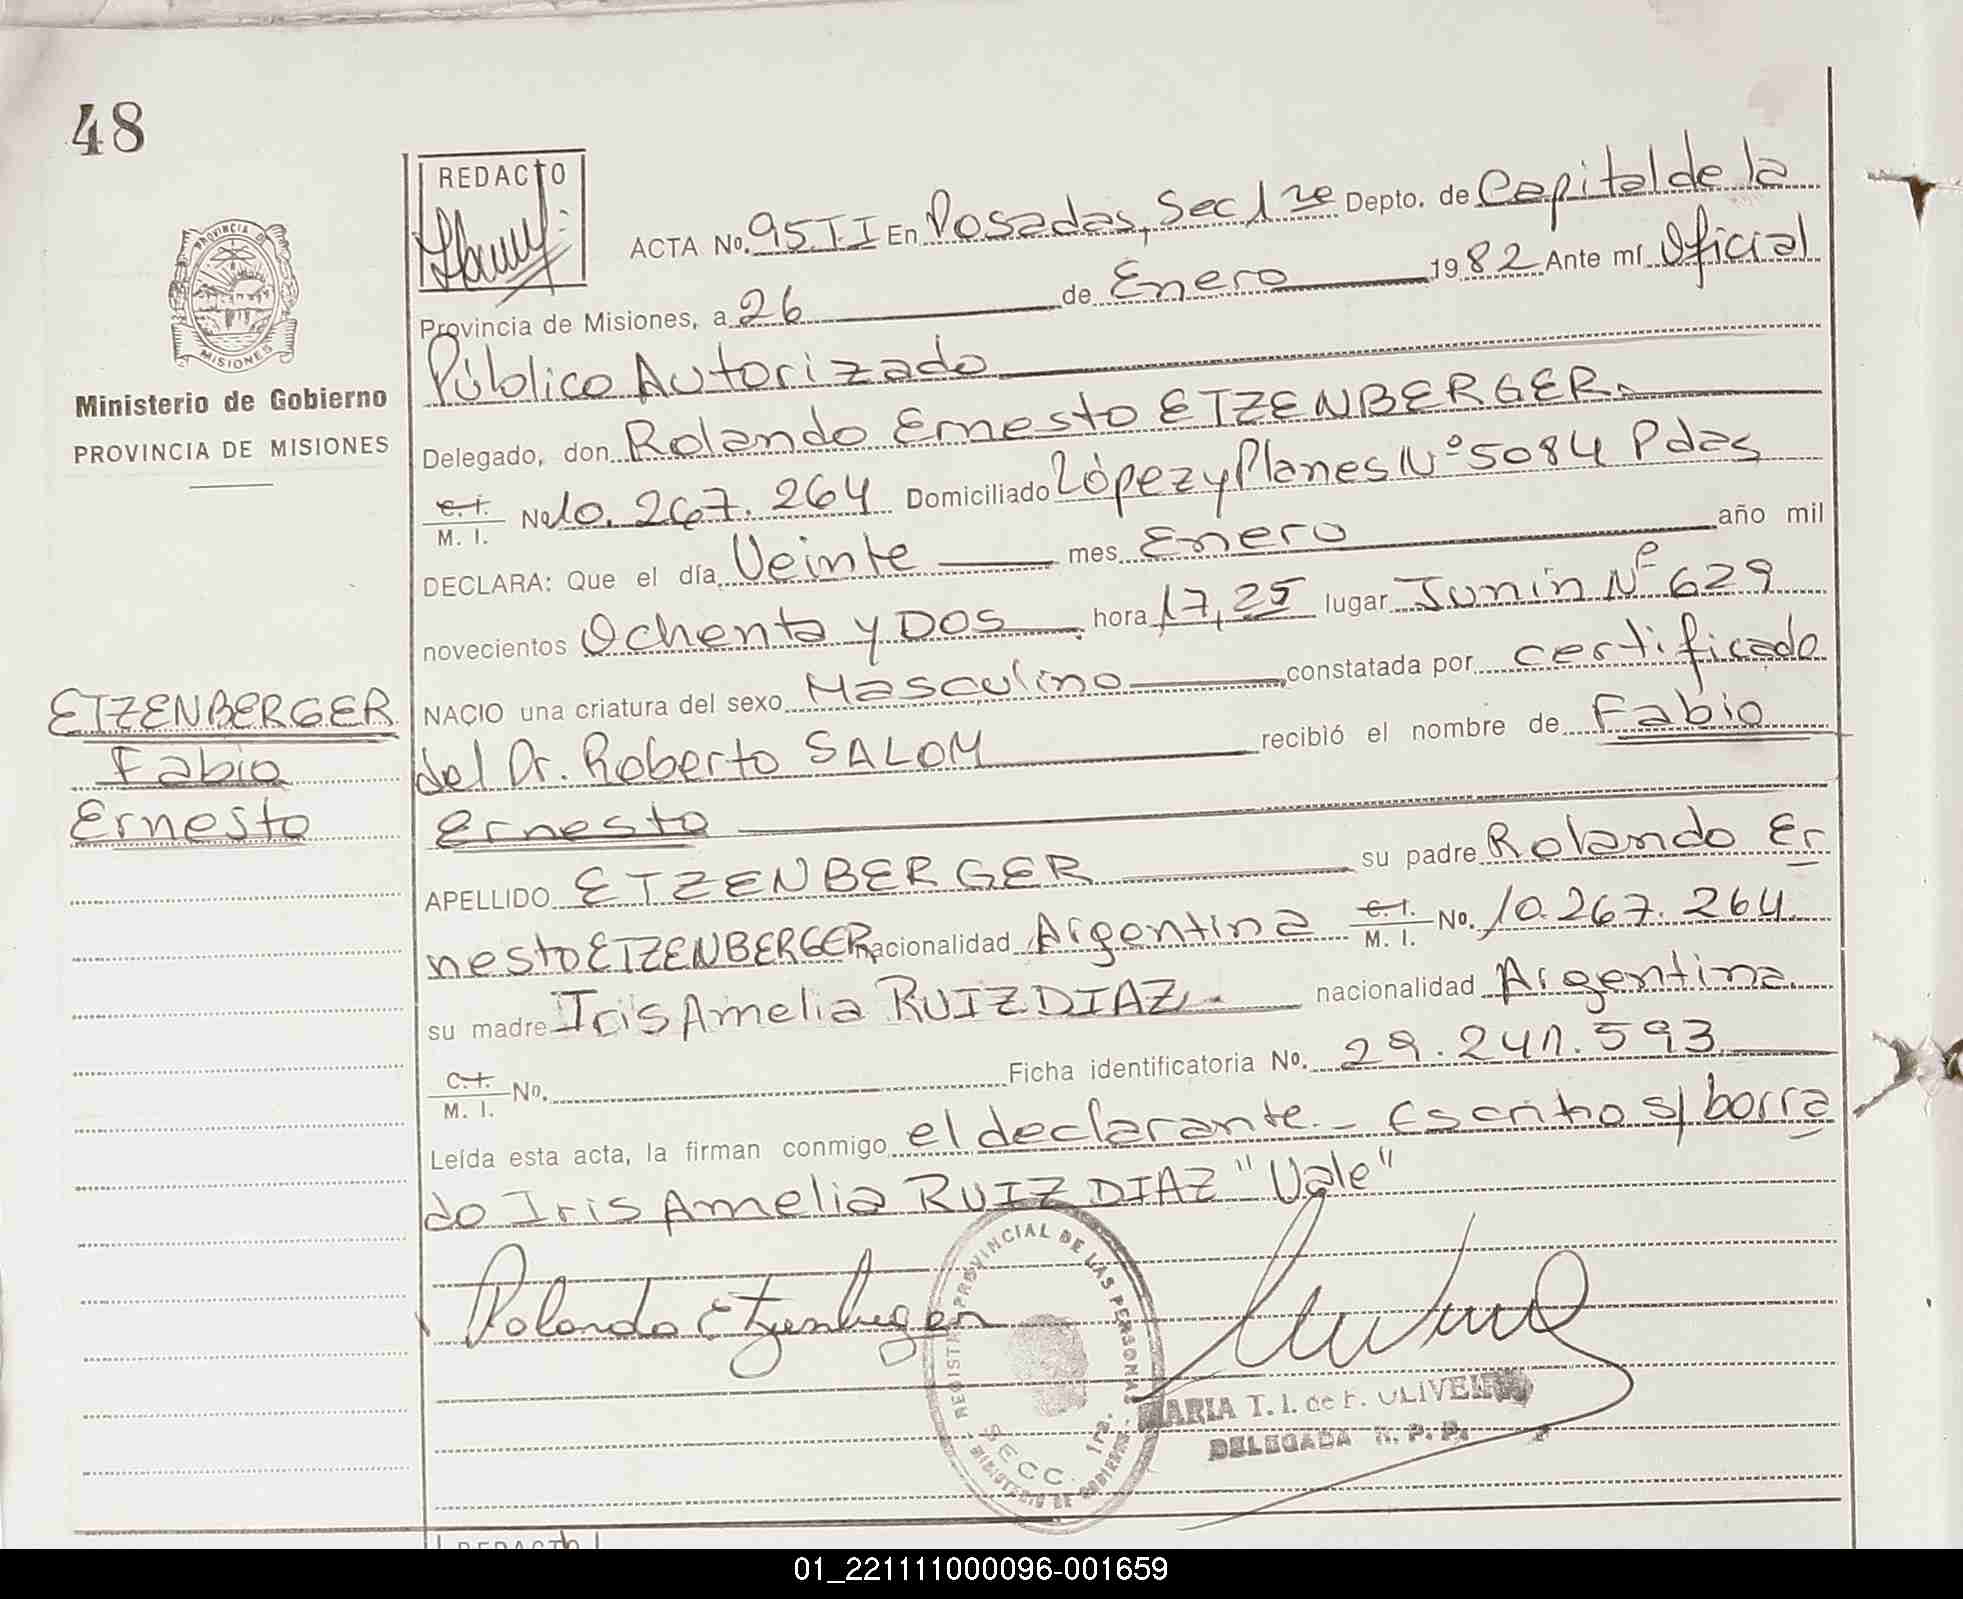 48
REDACTO
PROVINCIA DE
MISIONES
Ministerio de Gobierno
PROVINCIA DE MISIONES
ACTA No. 95 II En Posadas, Sec 1 ra Depto. de Capital de la
Provincia de Misiones, a 26 de Enero 1982 Ante mí Oficial
Público Autorizado
Delegado, don Rolando Ernesto ETZENBERGER.
C.I. M. I. No 10.267.264 Domiciliado López y Planes Nº 5084 Pdas
DECLARA: Que el día Veinte mes Enero año mil
novecientos Ochenta y DOS hora 17,25 lugar Junín Nº 629
NACIO una criatura del sexo Masculino constatada por certificado
del Dr. Roberto SALOM recibió el nombre de Fabio
Ernesto
APELLIDO ETZENBERGER su padre Rolando Er
nesto ETZENBERGER nacionalidad Argentina C.I. M. I. No. 10.267.264
su madre Iris Amelia RUIZ DIAZ.- nacionalidad Argentina.
C.I. M. I. No. Ficha identificatoria No. 29.241.593
Leída esta acta, la firman conmigo el declarante.- Escrito s/ borra
do Iris Amelia RUIZ DIAZ "Vale"
ETZENBERGER
Fabio
Ernesto
Rolando Etzenberger
REGISTRO PROVINCIAL DE LAS PERSONAS
SECC. 1ra.
MINISTERIO DE GOBIERNO
MARIA T. I. de F. OLIVEIRA
DELEGADA R. P. P.
REDACTO
01_221111000096-001659